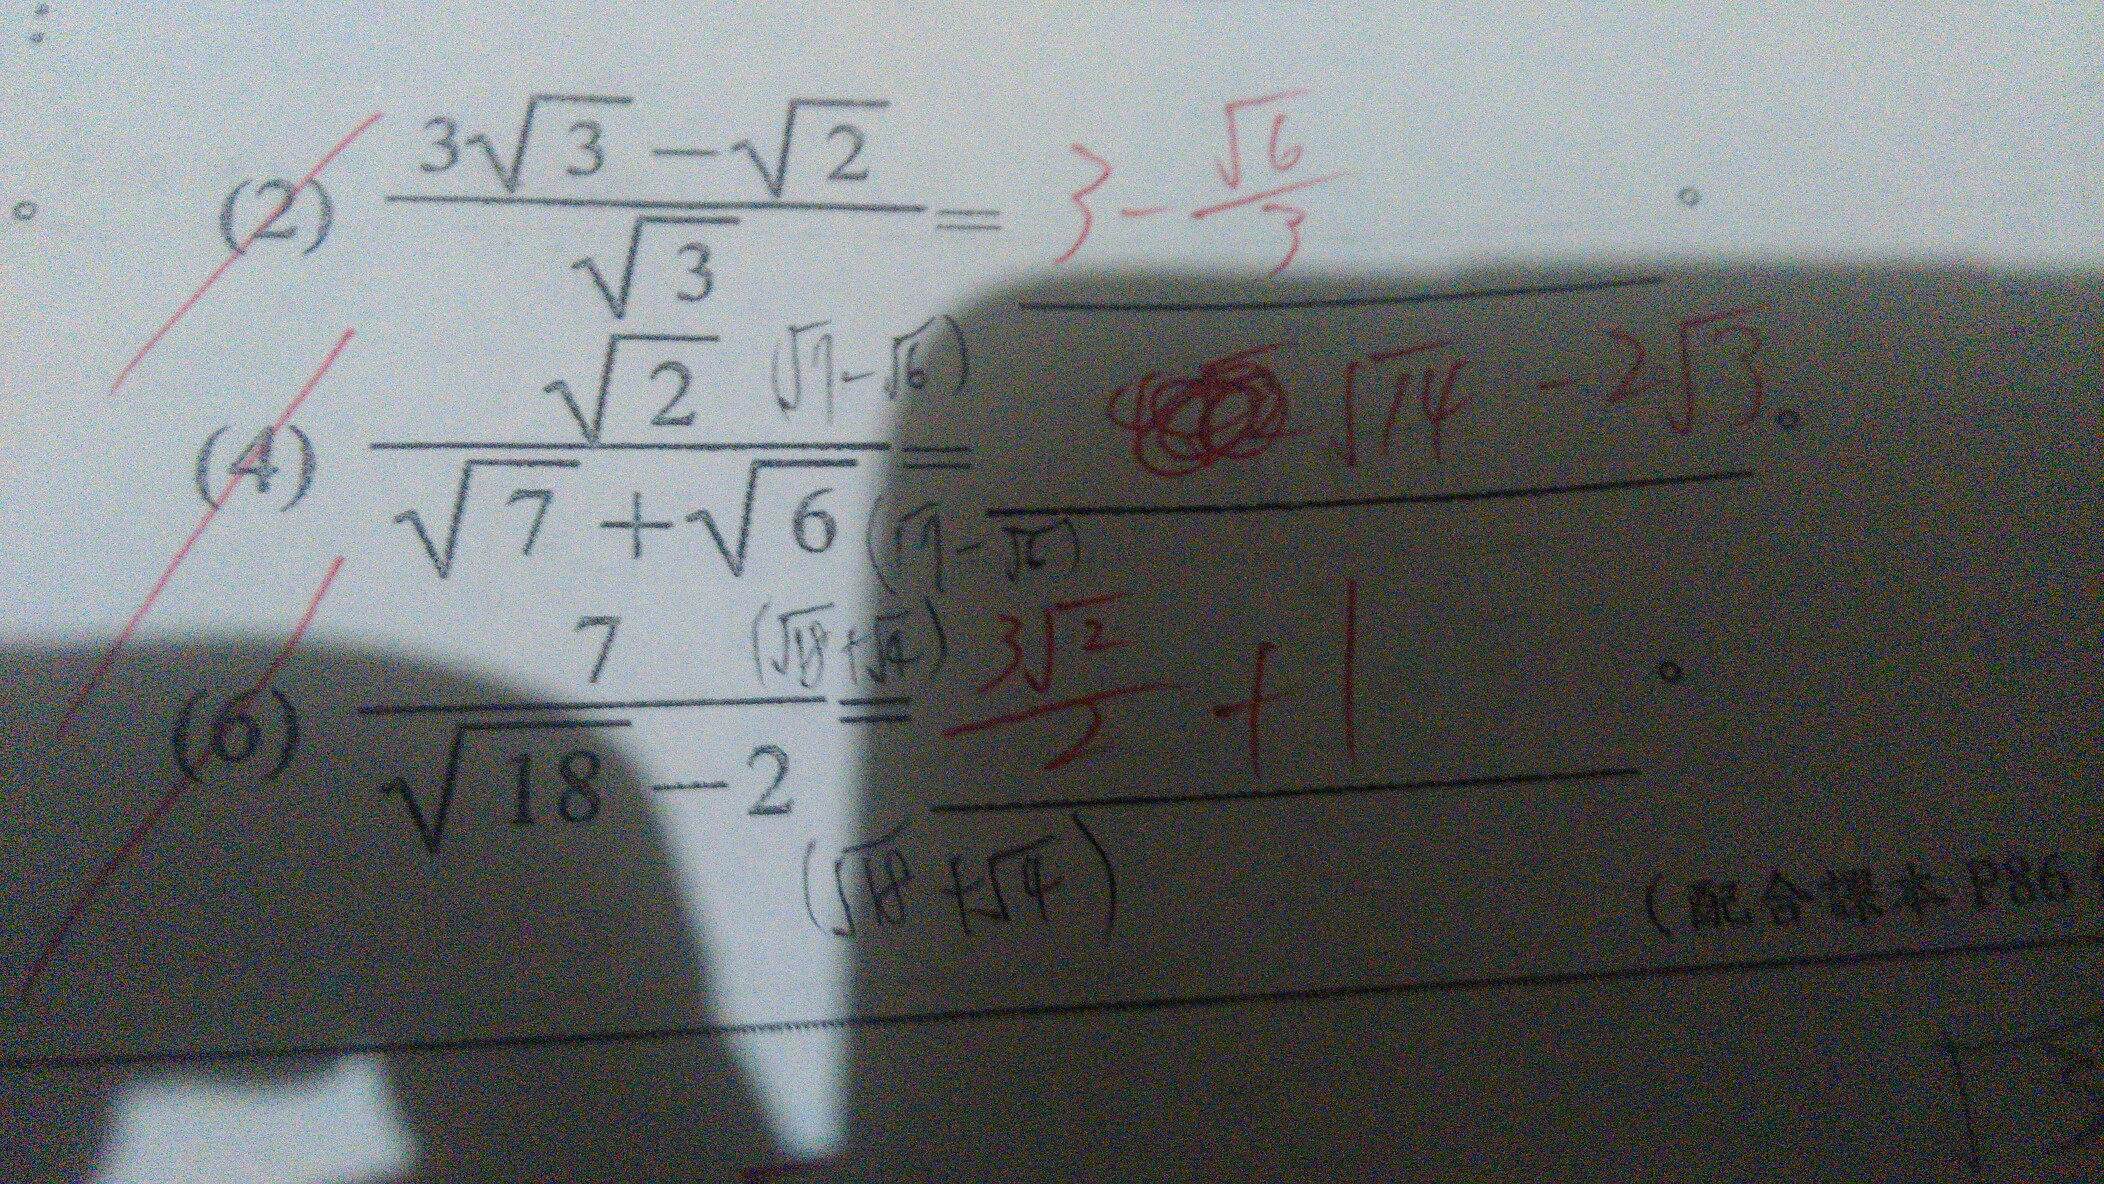 (2) (3√3 − √2)/√3 = 3 − √6/3 。
(4) √2 (√7 − √6)/√7 + √6 (√7 − √6) = √14 − 2√3 。
(6) 7 (√18 + √4)/√18 − 2 (√18 + √4) = 3√2/2 + 1 。
(配合課本 P86